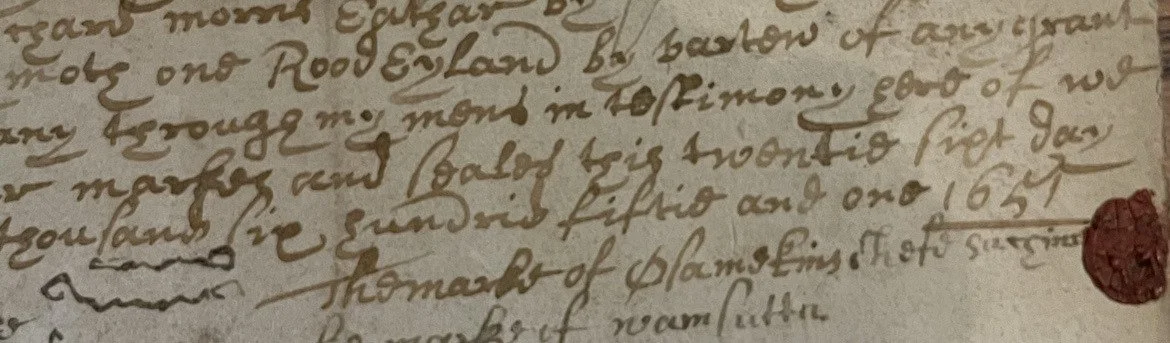 chard morris Eather by
moth one Rood Eyland by varteu of any grant
any through my mens in testimony here of we
r markes and seales this twentie sixt day
thousand six hundrid fiftie and one 1651
The marke of Osamekins Chefe
marke of wamsutta